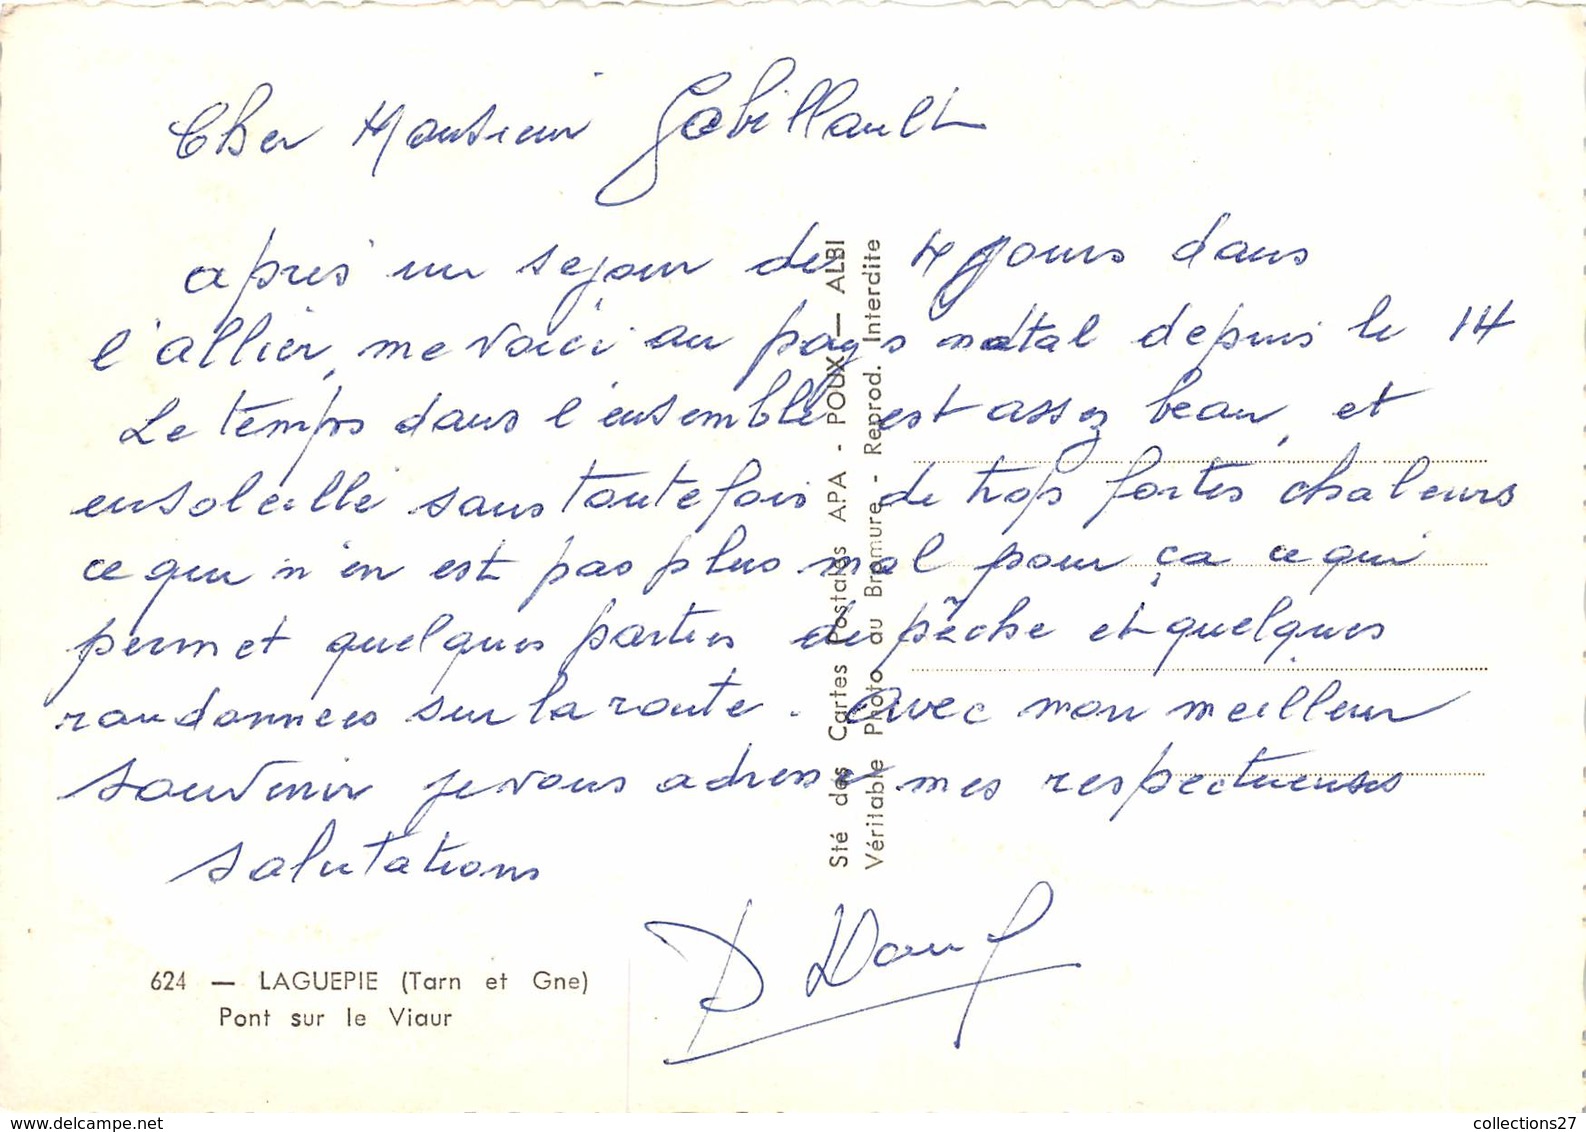 Cher Monsieur Gabillault
après un séjour de 4 jours dans
l'allier, me voici au pays natal depuis le 14
Le temps dans l'ensemble est assez beau, et
ensoleillé sans toutefois de trop fortes chaleurs
ce qui n'en est pas plus mal pour ça ce qui
permet quelques parties de pêche et quelques
randonnées sur la route. avec mon meilleur
souvenir je vous adresse mes respectueuses
salutations
Sté des Cartes Postales APA - POUX — ALBI
Véritable Photo au Bromure - Reprod. Interdite
624 — LAGUEPIE (Tarn et Gne)
Pont sur le Viaur
www.delcampe.net
collections27